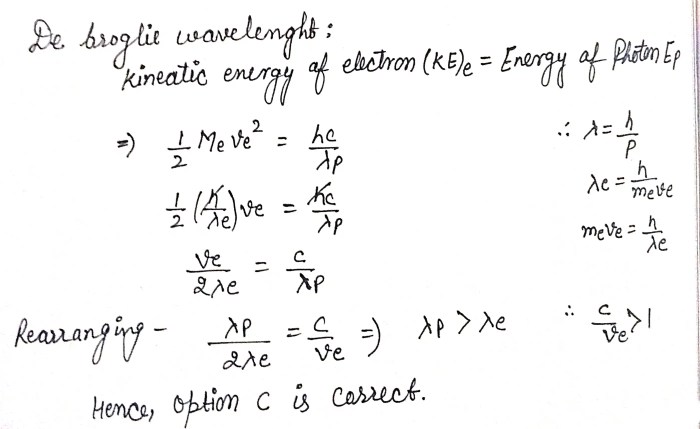 De broglie wavelenght:
Kineatic energy of electron (KE)e = Energy of Photon Ep
⇒ 1/2 Me ve² = hc/λp ∴ λ = h/p
1/2 (h/λe) ve = hc/λp λe = h/meve
ve/2λe = c/λp meve = h/λe
Rearranging - λp/2λe = c/ve ⇒ λp > λe ∵ c/ve > 1
Hence, option C is correct.